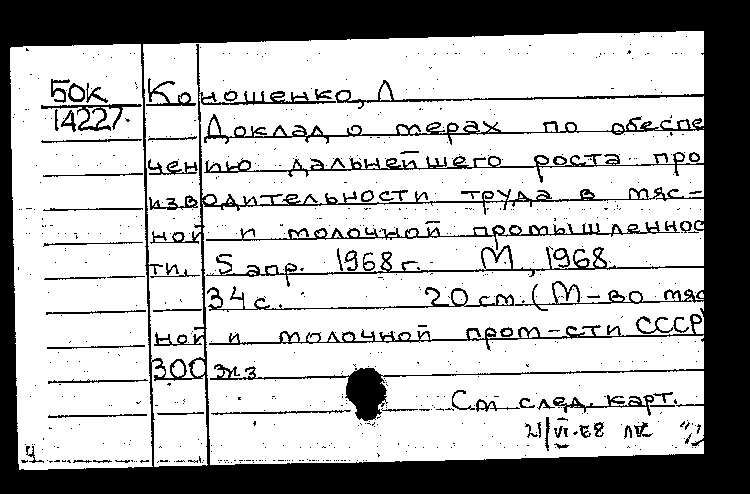 50к Коношенко, Л
14227. Доклад о мерах по обеспе
чению дальнейшего роста про
изводительности труда в мяс-
ной и молочной промышленнос
ти. 5 апр. 1968 г. М, 1968.
34 с. 20 см. (М-во мяс
ной и молочной пром-сти СССР)
300 экз
См след. карт.
21/VI-68
ч